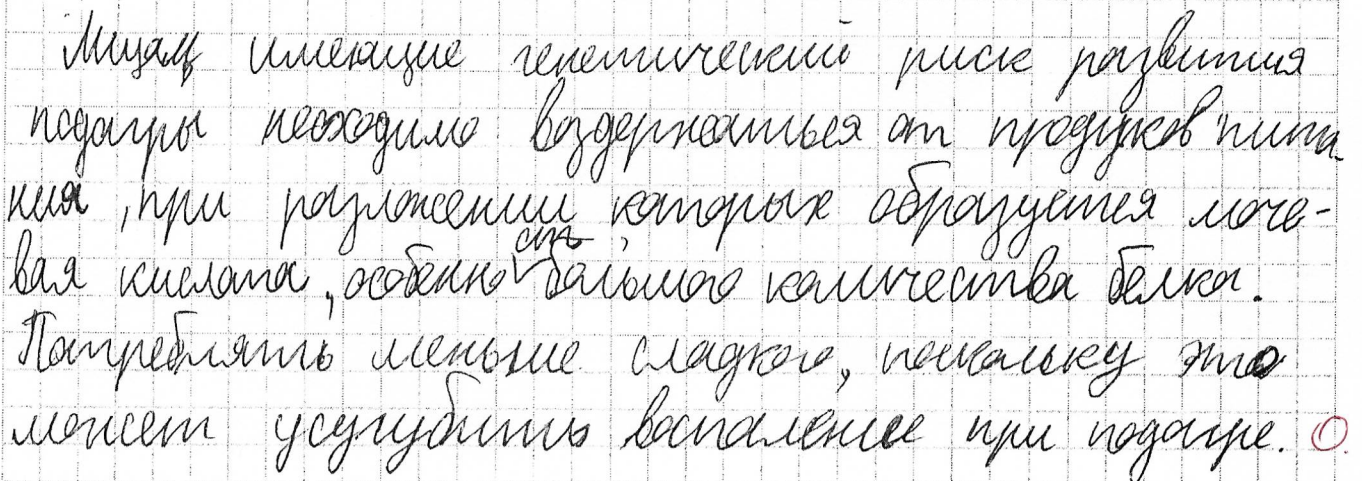 Лицам имеющие генетический риск развития
подагры необходимо воздержаться от продуков пита-
ния, при разложении которых образуется моче-
вая кислота, особенно от большого количества белка.
Потреблять меньше сладкого, поскольку это
может усугубить воспаление при подагре. 0.